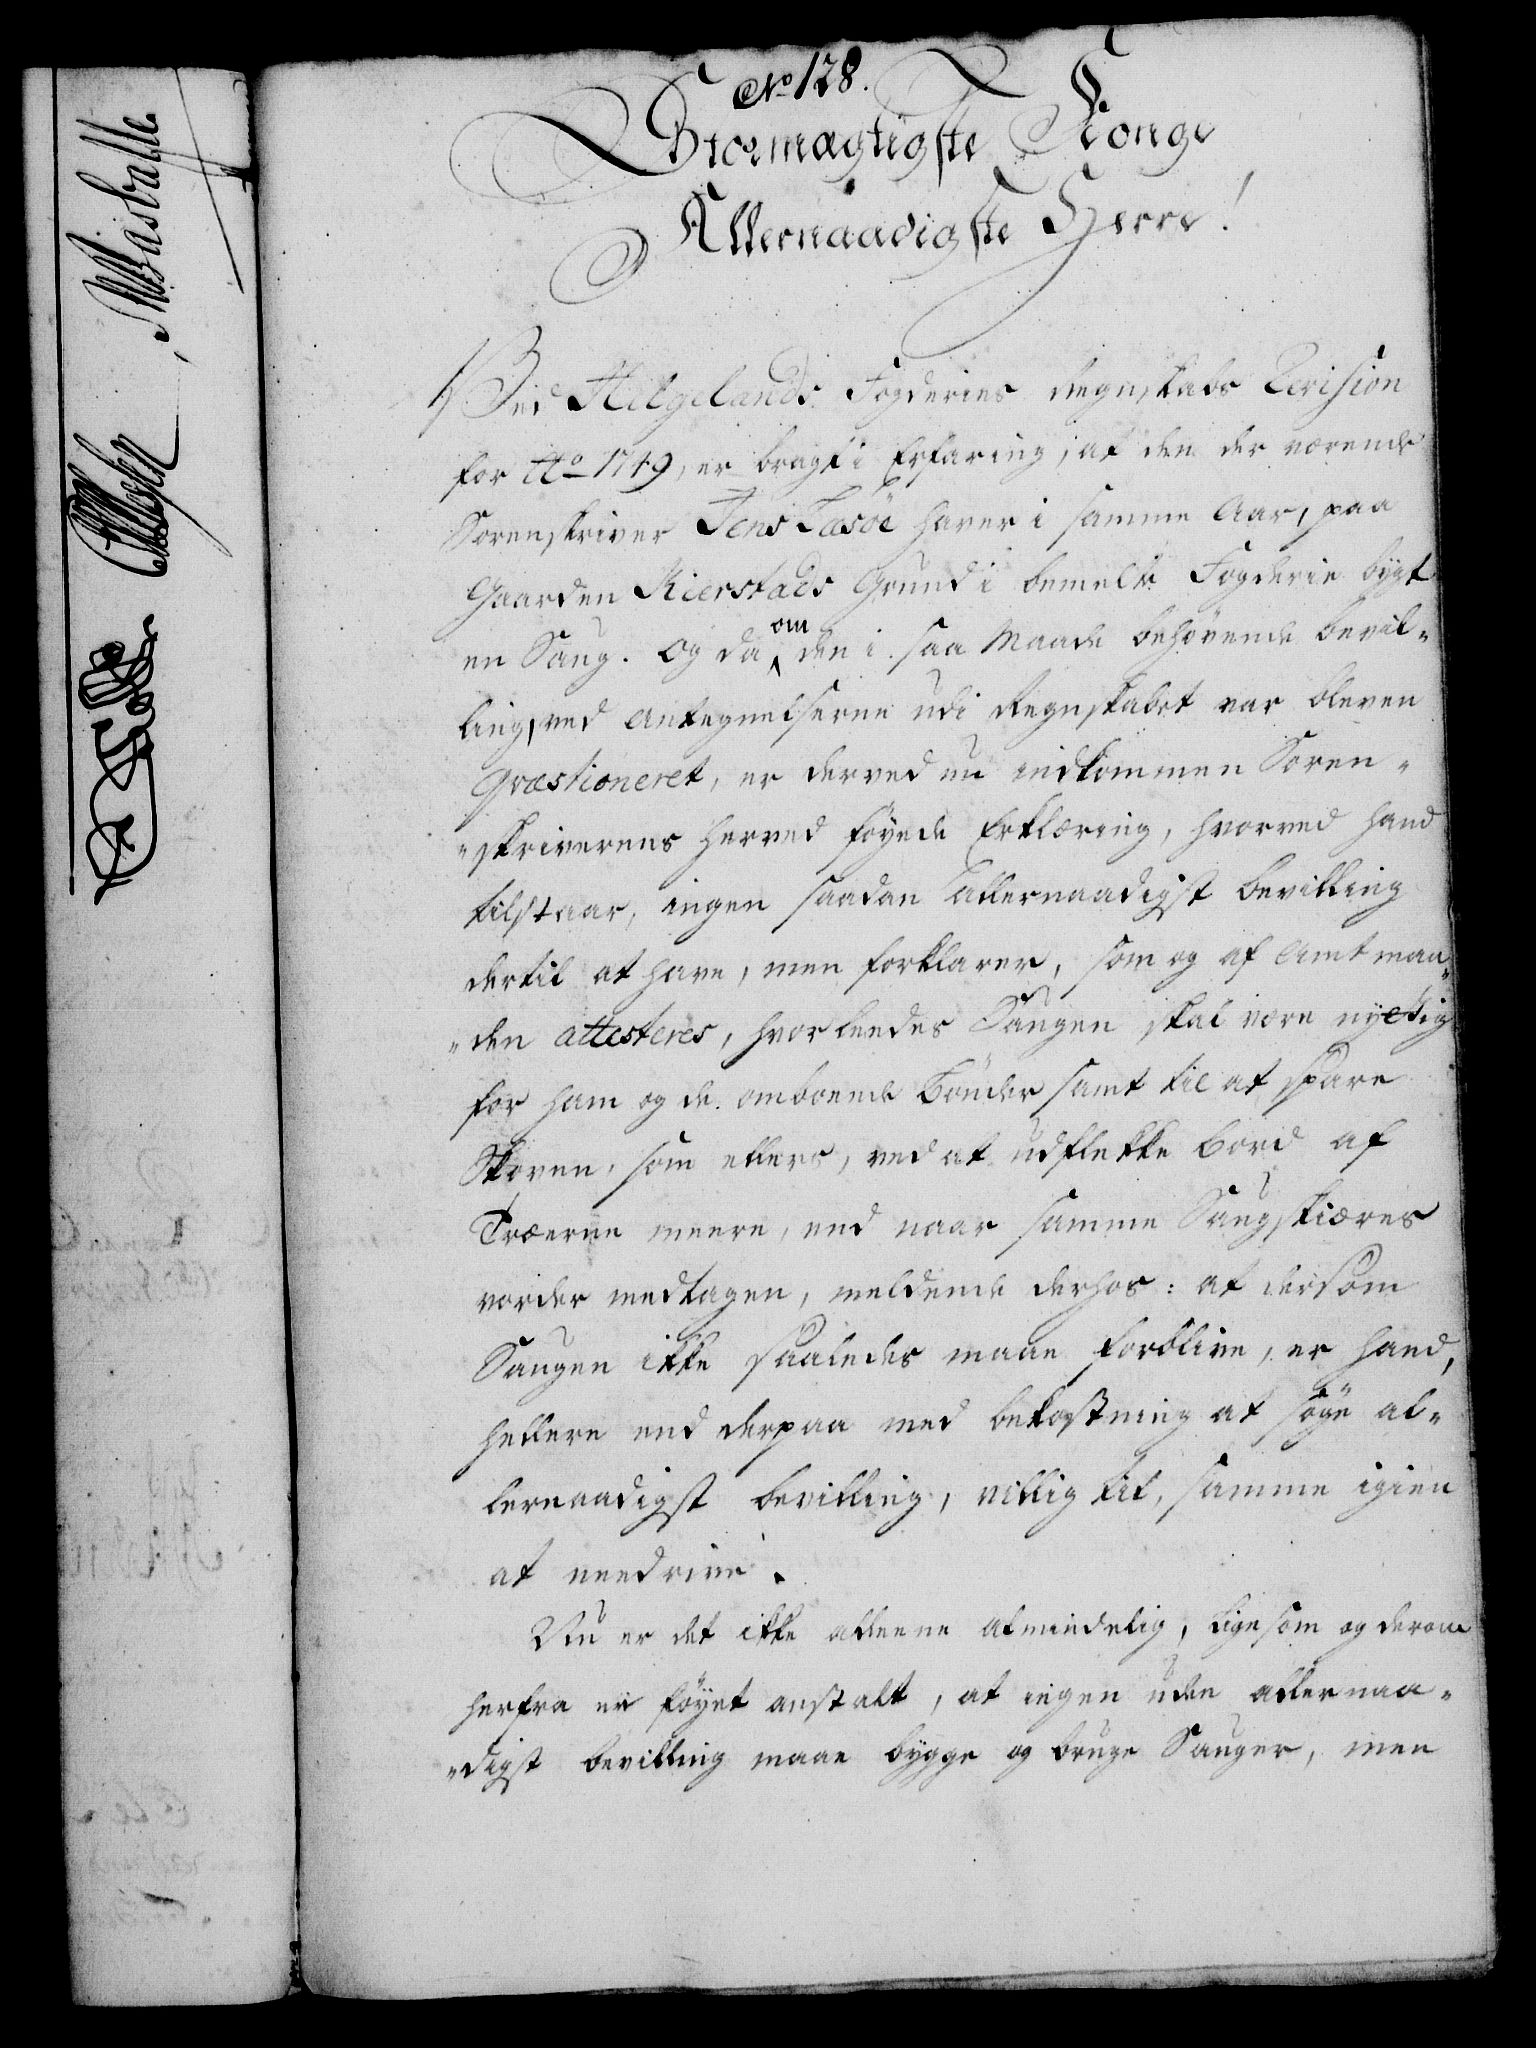 No 128.
Stormægtigste Konge
Allernaadigste Herre!
Ved Helgelands Fogderies Regnskabs Revision
for Ao 1749, er bragt i Erfaring, at den der værende
Sorenskriver Jens Læsöe haver i samme Aar, paa
Gaarden Kierstads Grund i bemelte Fogderie bygt
en Saug. Og da om den i saa Maade behøvende bevil-
ling, ved Antegnelserne udi Regnskabet var bleven
qvæstioneret, er derved nu indkommen Soren-
-skriverens herved föyede Erklæring, hvorved hand
tilstaar, ingen saadan allernaadigst bevilling
dertil at have, men forklarer, som og af Amtman-
-den attesteres, hvorledes Saugen skal være nyttig
for ham og de omboende Bönder samt til at spare
Skoven, som ellers, ved at udflekke Bord af
Træerne meere, end naar samme Saugskiæres
vorder medtagen, meldende derhos: at dersom
Saugen ikke saaledes maae forblive, er hand,
hellere end derpaa med bekostning at söge al-
lernaadigst bevilling, villig til, samme igien
at needrive.
Nu er det ikke alleene almindelig, ligesom og derom
herfra er föyet anstalt, at ingen uden allernaa-
-digst bevilling maae bygge og bruge Sauger, men